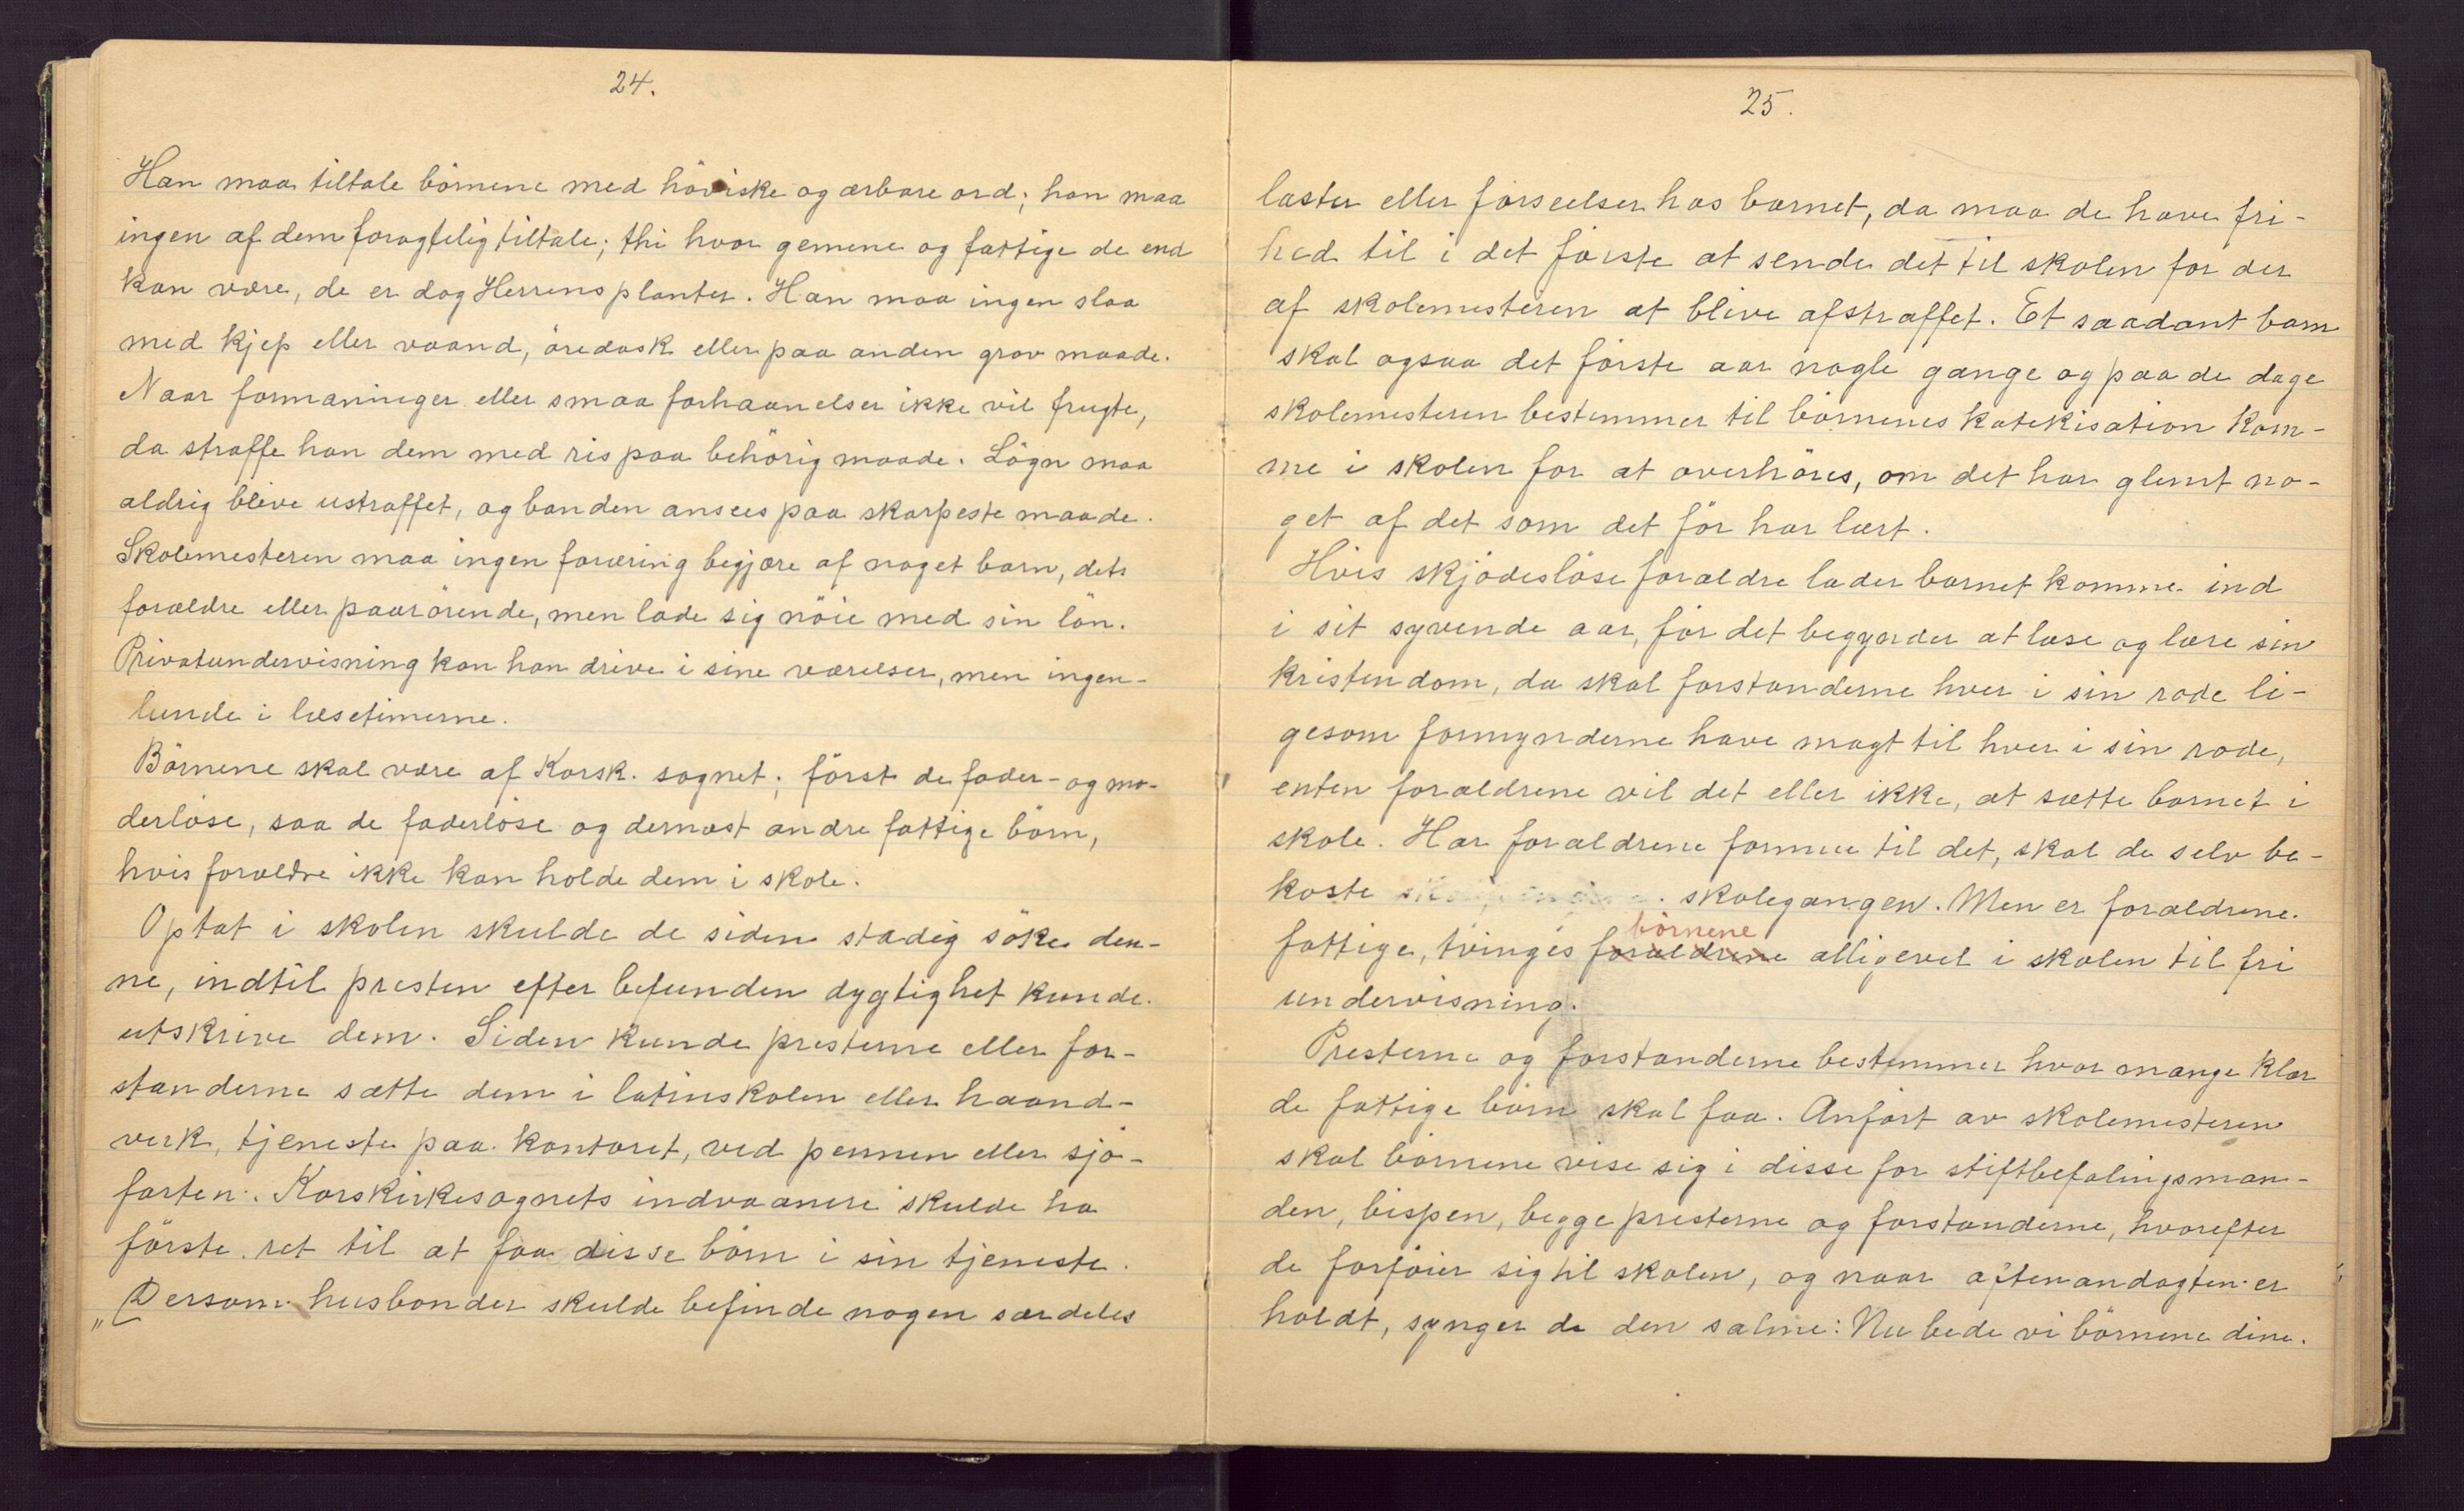 24.
Han maa tiltale börnene med höviske og ærbare ord; han maa
ingen af dem foragtelig tiltale; thi hvor gemene og fattige de end
kan være, de er dog Herrens planter. Han maa ingen slaa
med kjep eller vaand, öredask eller paa anden grov maade.
Naar formaninger eller smaa forhaanelser ikke vil frugte,
da straffe han dem med ris paa behörig maade. Lögn maa
aldrig blive ustraffet, og banden ansees paa skarpeste maade.
Skolemesteren maa ingen foræring begjære af noget barn, dets
forældre eller paarörende, men lade sig nöie med sin lön.
Privatundervisning kan han drive i sine værelser, men ingen-
lunde i læsetimerne.
Börnene skal være af Korsk. sognet; först de fader- og mo-
derlöse, saa de faderlöse og dernæst andre fattige börn,
hvis forældre ikke kan holde dem i skole.
Optat i skolen skulde de siden stadig söke den-
ne, indtil presten efter befunden dygtighet kunde
utskrive dem. Siden kunde presterne eller for-
standerne sætte dem i latinskolen eller haand-
verk, tjeneste paa kontoret, ved pennen eller sjö-
farten. Korskirkesognets indvaanere skulde ha
förste ret til at faa disse börn i sin tjeneste.
„Dersom husbonder skulde befinde nogen særdeles
25.
laster eller forseelser hos barnet, da maa de have fri-
hed til i det förste at sende det til skolen for der
af skolemesteren at blive afstraffet. Et saadant barn
skal ogsaa det förste aar nogle gange og paa de dage
skolemesteren bestemmer til börnenes katekisation kom-
me i skolen for at overhöres, om det har glemt no-
get af det som det för har lært.
Hvis skjödeslöse forældre lader barnet komme ind
i sit syvende aar, för det begynder at læse og lære sin
kristendom, da skal forstanderne hver i sin rode li-
gesom formynderne have magt til hver i sin rode,
enten forældrene vil det eller ikke, at sætte barnet i
skole. Har forældrene formue til det, skal de selv be-
koste skolegangen. Men er forældrene
börnene
fattige, tvinges forældrene alligevel i skolen til fri
undervisning.
Presterne og forstanderne bestemmer hvor mange klær
de fattige börn skal faa. Anfört av skolemesteren
skal börnene vise sig i disse for stiftbefalingsman-
den, bispen, begge presterne og forstanderne, hvorefter
de forföier sig til skolen, og naar aftenandagten er
holdt, synger de den salme: Nu bede vi börnene dine.